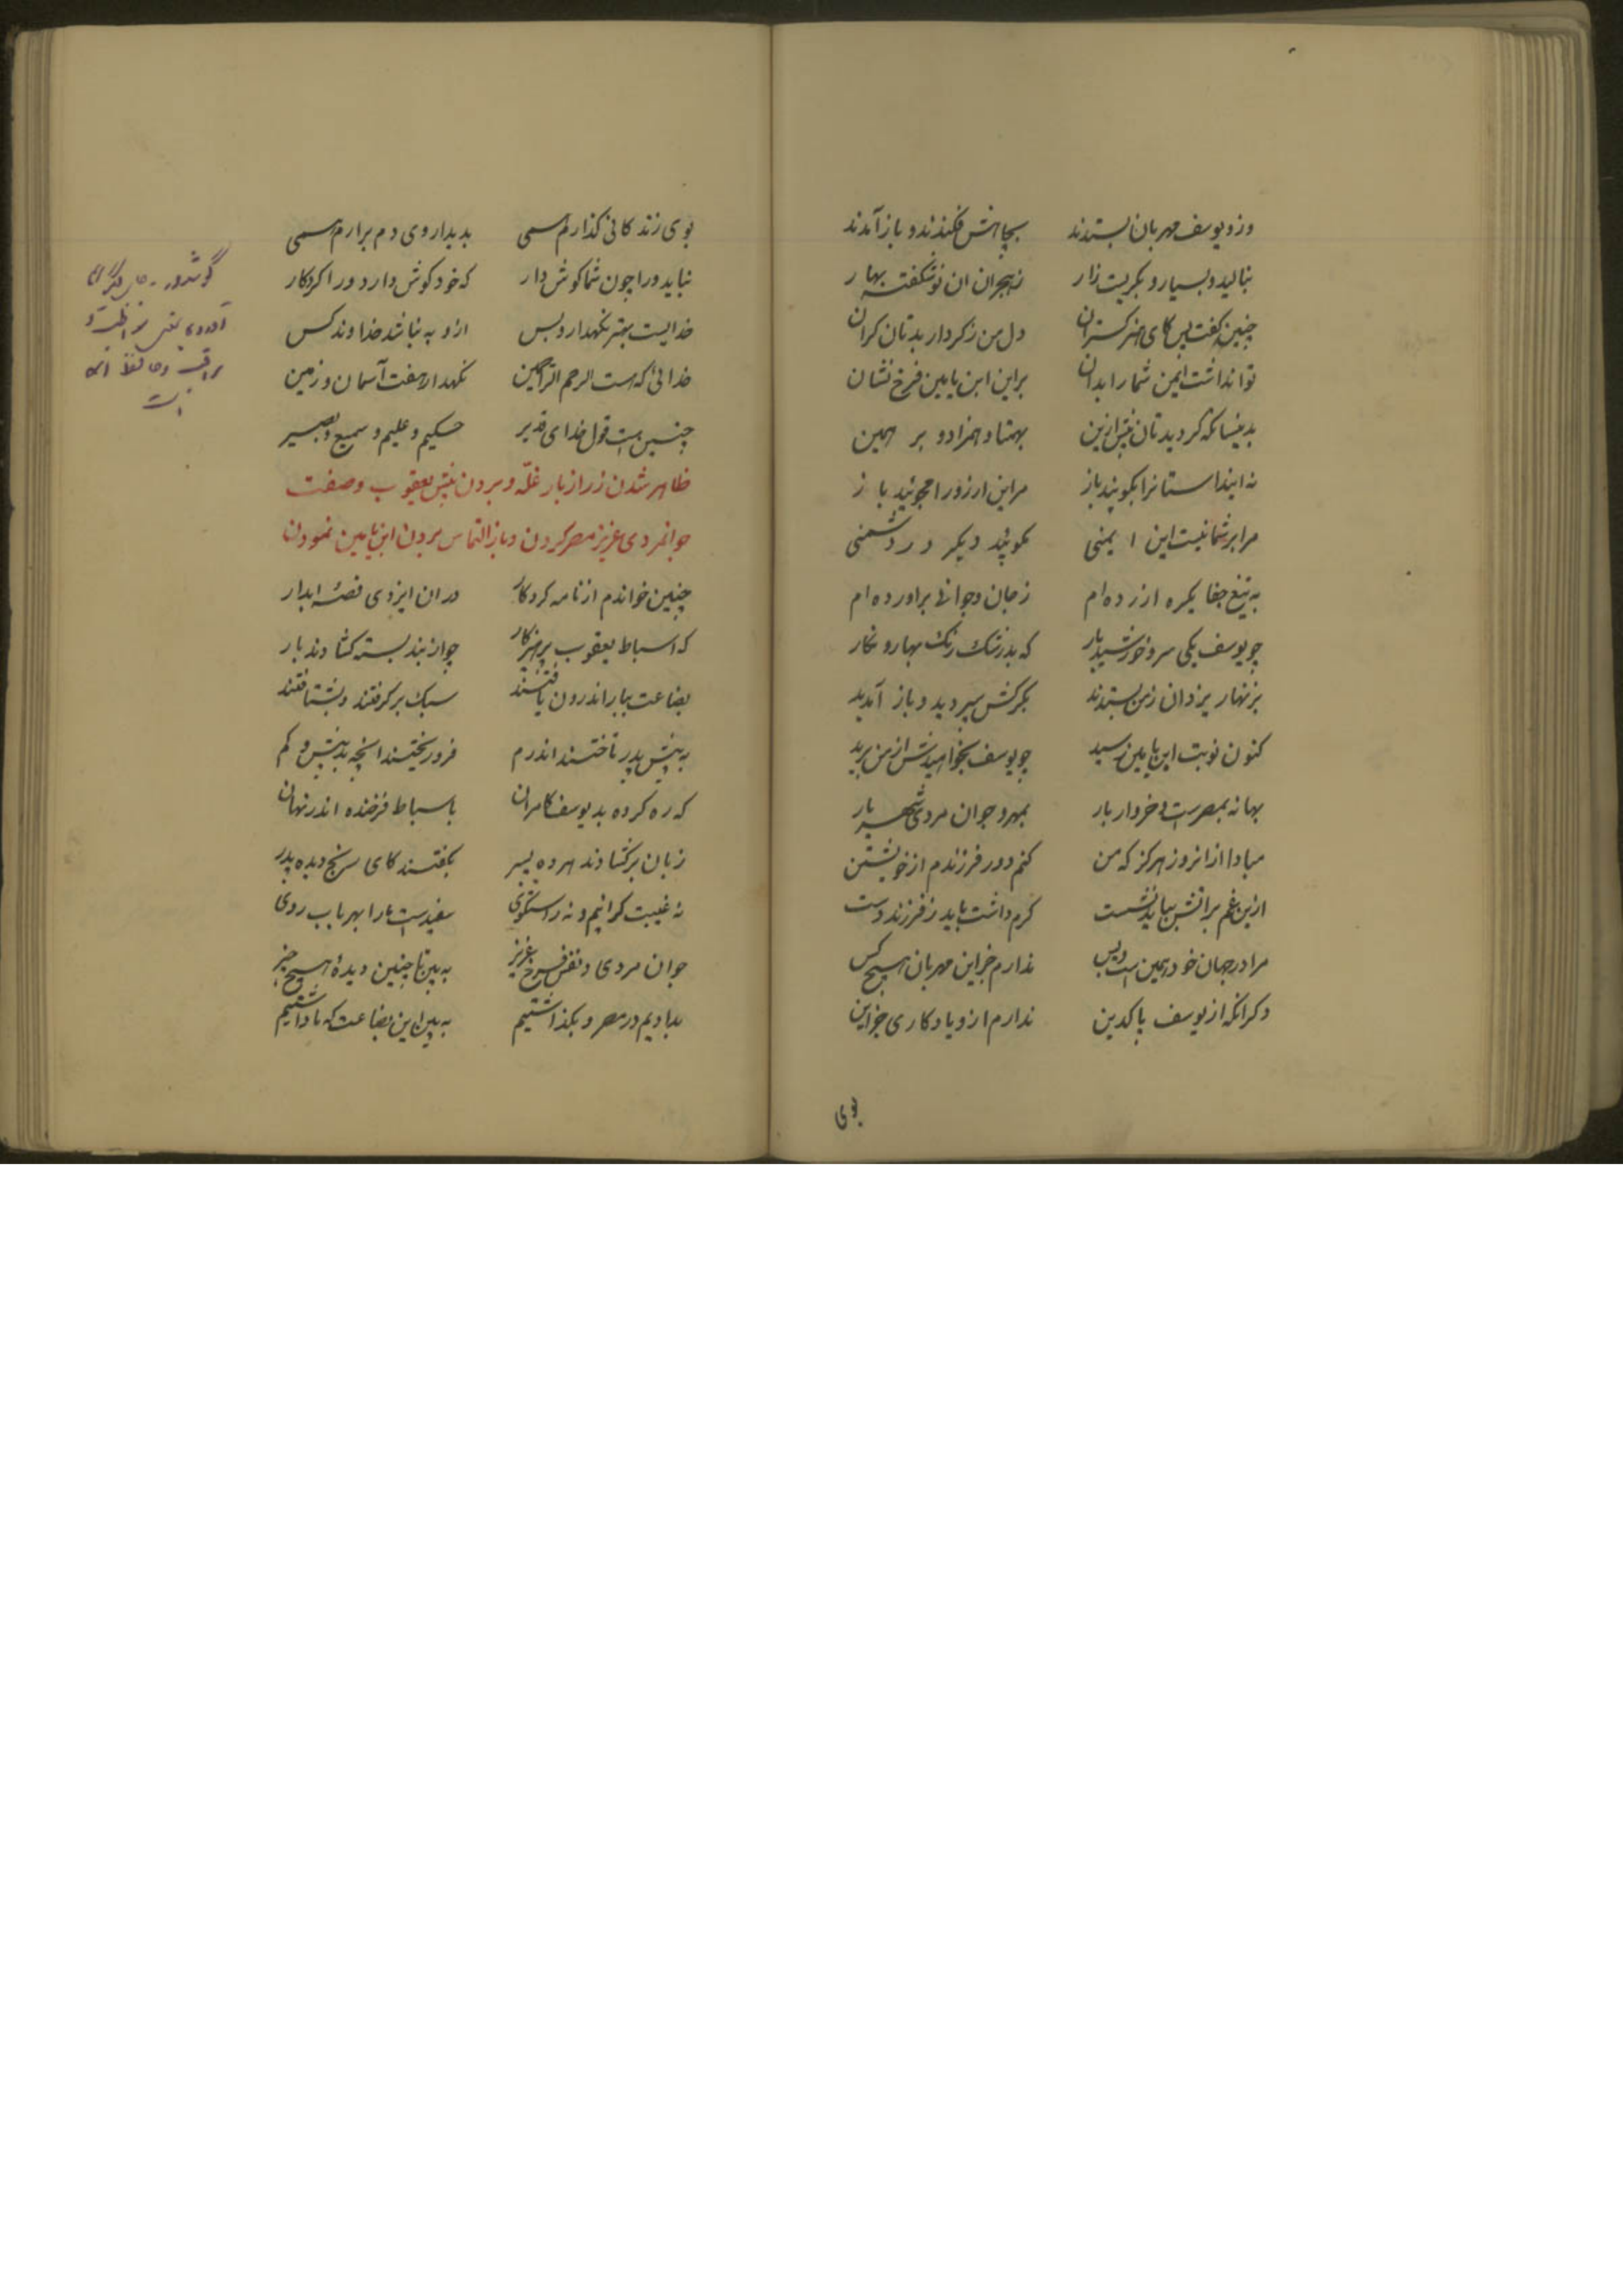 وزو یوسف مهربان بستدند بچاهش فکندند و باز آمدند
بنالید و بسیار و بکریت زار زهجران ان نوشکفته بهار
چنین گفت پس کای هنر کستران دل من زکردار بدتان کران
توانداشت ایمن شما را بدان براین ابن یامین فرخ نشان
بدینسانکه کردیدتان پیش ازین بهمتا و همزاد و بر همین
نه اینداستانرا بکویید باز مراین ارزو را مجوئید باز
مرا بر شما نیست این ایمنی مکوئید دیکر در دشمنی
به تیغ جفا یکره ازرده‌ام زجان و جوانی براورده‌ام
چو یوسف یکی سرو خورشید بار که بد رشک رنک بهار و نکار
بزنهار یزدان زمن بستدند بکرکش سپردید و باز آمدید
کنون نوبت ابن یامین رسید چو یوسف بخواهیدش از من برید
بهانه بمصرست و خروار بار بمهر و جوان مردی شهریار
مبادا ازانروز هرکز که من کنم دور فرزندم از خویشتن
ازین غم براتش بباید نشست کرم داشت باید زفرزند دست
مرا درجهان خود همین است و بس ندارم جز این مهربان هیچ کس
دکر انکه از یوسف پاکدین ندارم ازو یادکاری جز این
بوی
بوی زندکانی کذارم همی بدیدار وی دم برارم همی
نباید ورا چون شما کوش دار که خود کوش دارد ورا کردکار
خدایست بهتر نکهدار و بس ازو به نباشد خداوند کس
خدائی که هست ارحم الراحمین نکهدار هفت آسمان و زمین
چنین است قول خدای قدیر حکیم و علیم و سمیع و بصیر
ظاهر شدن زر از بار غلّه و بردن پیش یعقوب و صفت
جوانمردی عزیز مصر کردن و باز التماس بردن ابن یامین نمودن
چنین خواندم از نامه کردکار در ان ایزدی قصهٔ ابدار
که اسباط یعقوب پرهیزکار چو از بند بسته کشادند بار
بضاعت ببار اندرون یافتند سبک برکرفتند و بشتافتند
به پیش پدر تاختند اندرم فرو ریختند انچه بد بیش و کم
که ره کرده بد یوسف کامران باسباط فرخنده اندر نهان
زبان برکشادند هر ده پسر بکفتند کای رنج دیده پدر
نه غیبت کرانیم و نه راستکوی سفیدست ما را بهر باب روی
جوان مردی و نغز فرخ عزیز به بین تا چنین دیدهٔ هیچ چیز
بدادیم در مصر و بکذاشتیم به بین این بضاعت که ما داشتیم